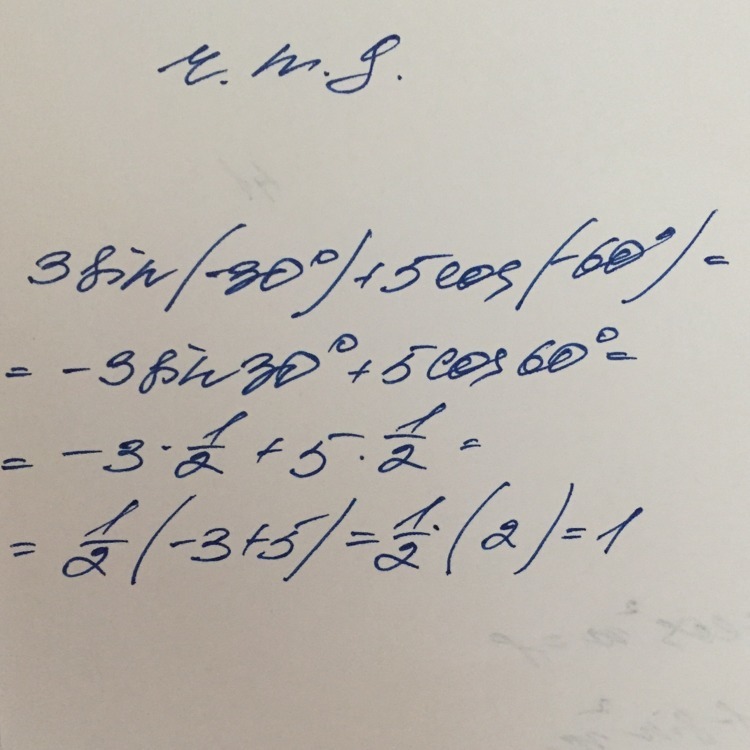 ч. т. д.
3 sin(-30°) + 5 cos(-60°) =
= -3 sin 30° + 5 cos 60° =
= -3 · 1/2 + 5 · 1/2 =
= 1/2 (-3+5) = 1/2 · (2) = 1